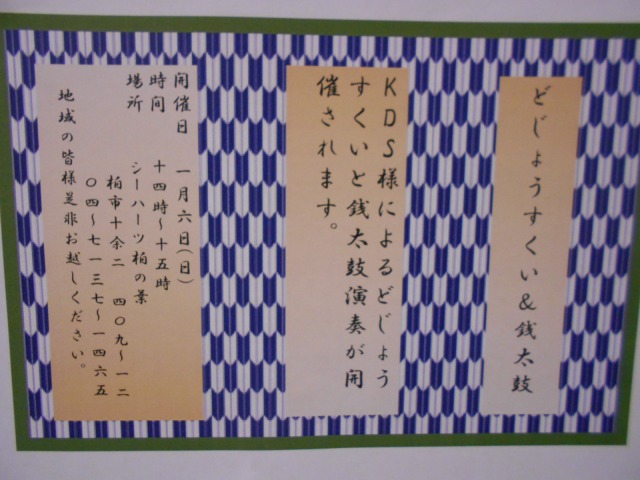 どじょうすくい&銭太鼓
KDS様によるどじょう
すくいと銭太鼓演奏が開
催されます。
開催日 一月六日(日)
時間 十四時～十五時
場所 シーハーツ柏の葉
柏市十余二 四〇九～一二
〇四～七一三七～一四六五
地域の皆様是非お越しください。